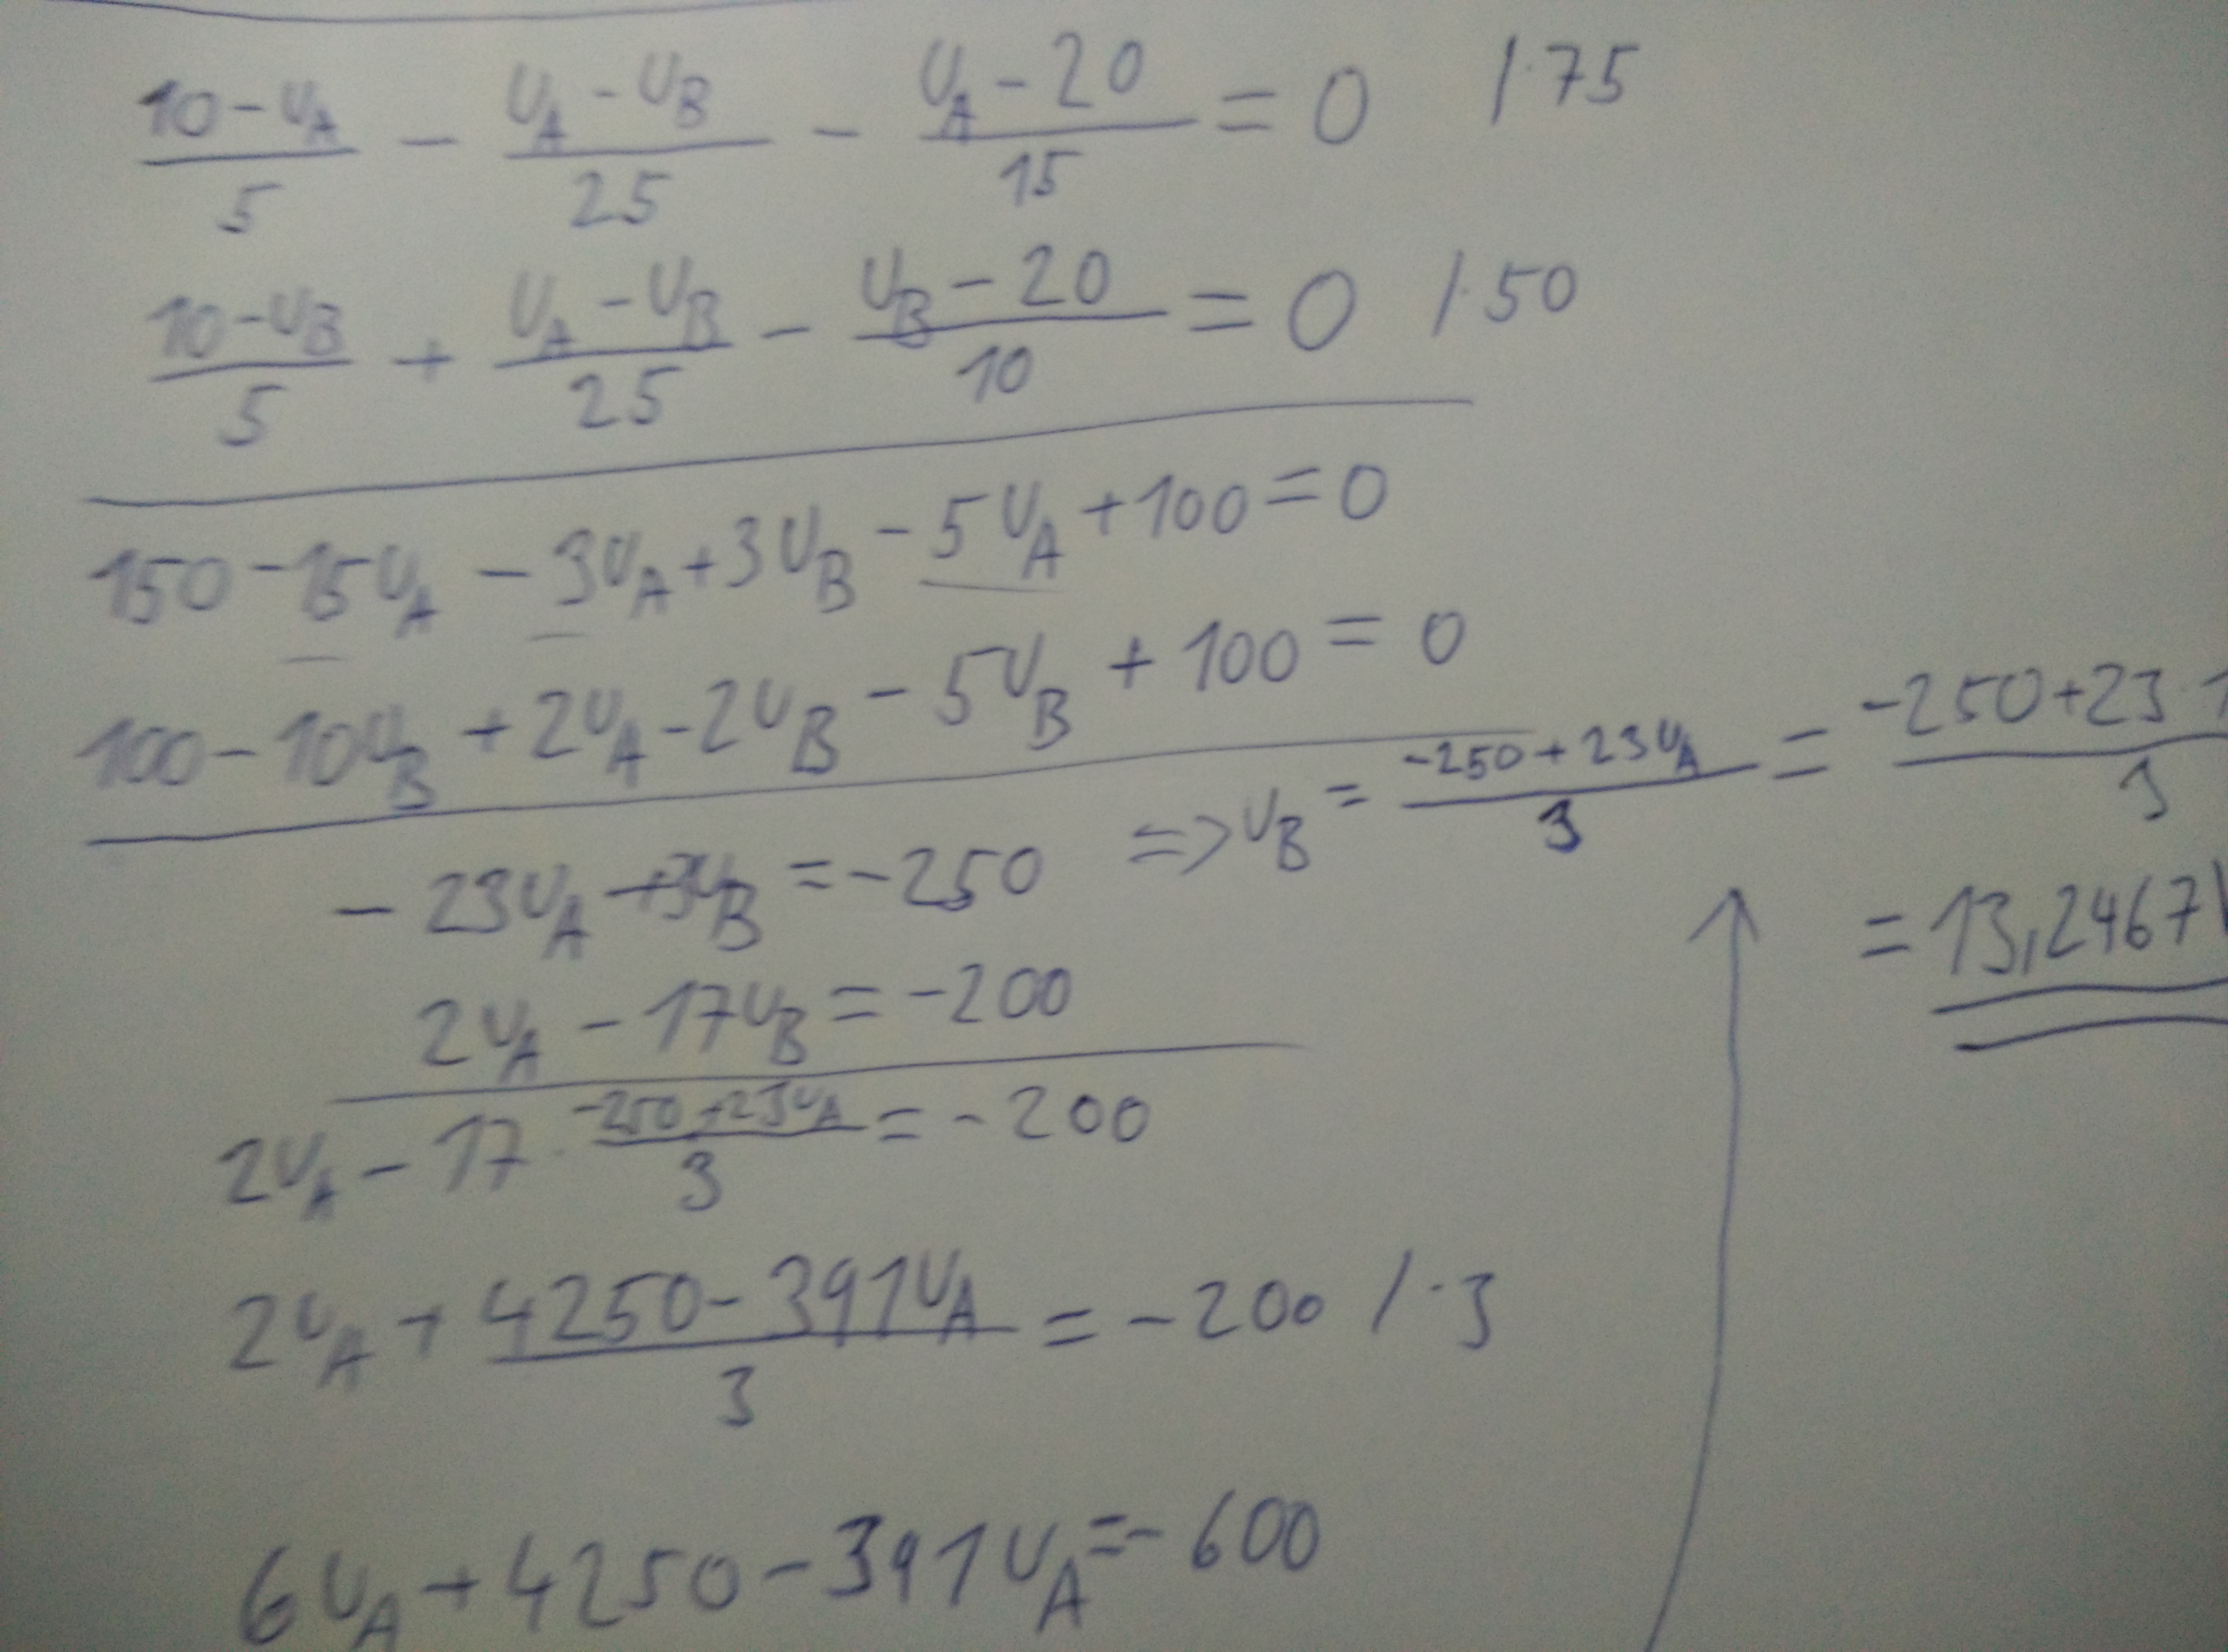 (10-U_A)/5 - (U_A-U_B)/25 - (U_A-20)/15 = 0 /·75
(10-U_B)/5 + (U_A-U_B)/25 - (U_B-20)/10 = 0 /·50
150-15U_A-3U_A+3U_B-5U_A+100=0
100-10U_B+2U_A-2U_B-5U_B+100=0
-23U_A+3U_B=-250 => U_B = (-250+23U_A)/3 = (-250+23·1)/3
= 13,2467V
2U_A-17U_B=-200
2U_A-17·(-250+23U_A)/3=-200
2U_A+(4250-391U_A)/3=-200 /·3
6U_A+4250-391U_A=-600